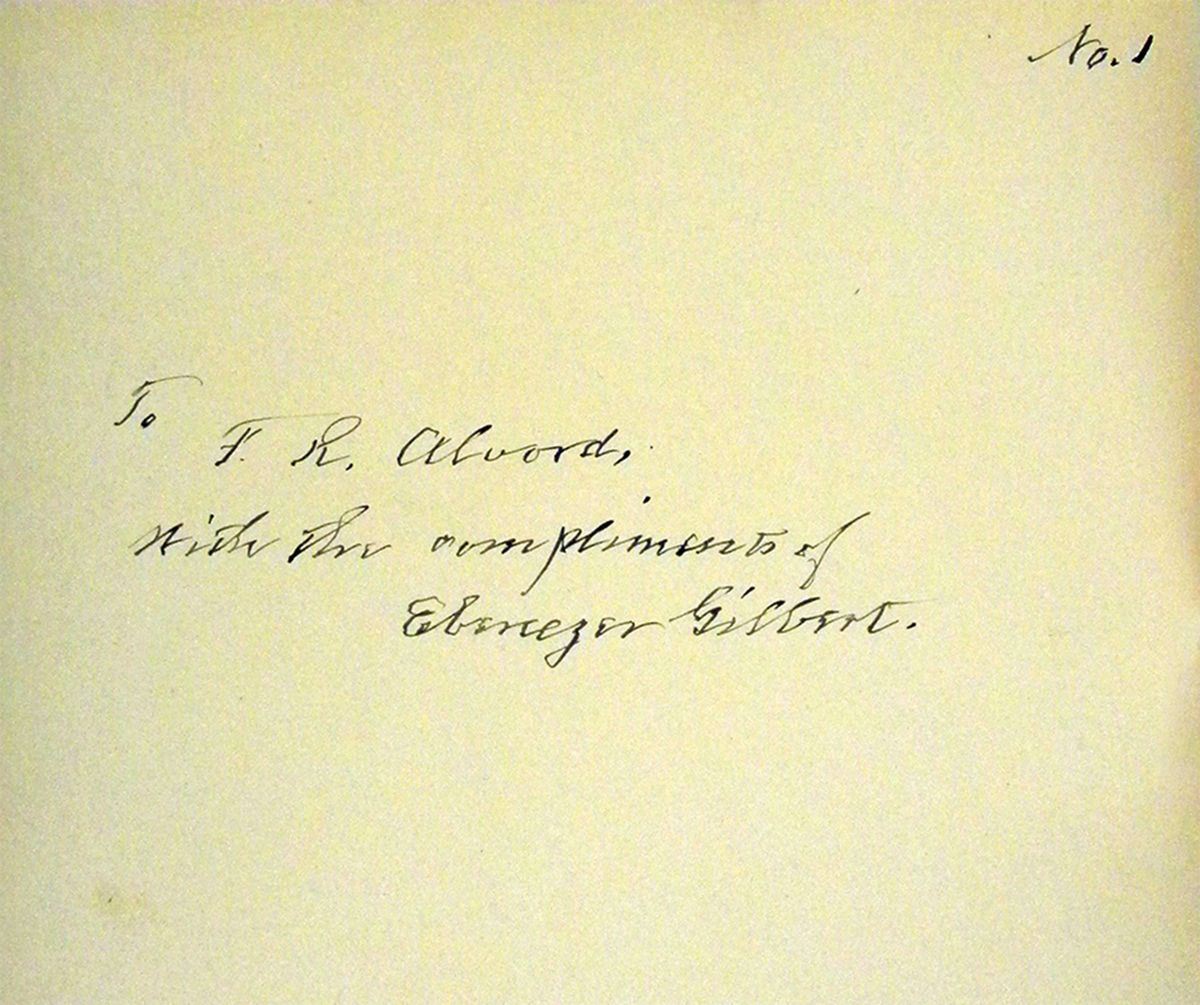 No. 1
To
F. R. Alvord,
With the compliments of
Ebenezer Gilbert.